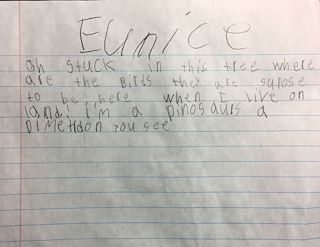 Eunice
Oh stuck in this tree where
are the Birds they are supose
to be here when I live on
land. i'm a Dinosaurs a
DiMetrdon you see